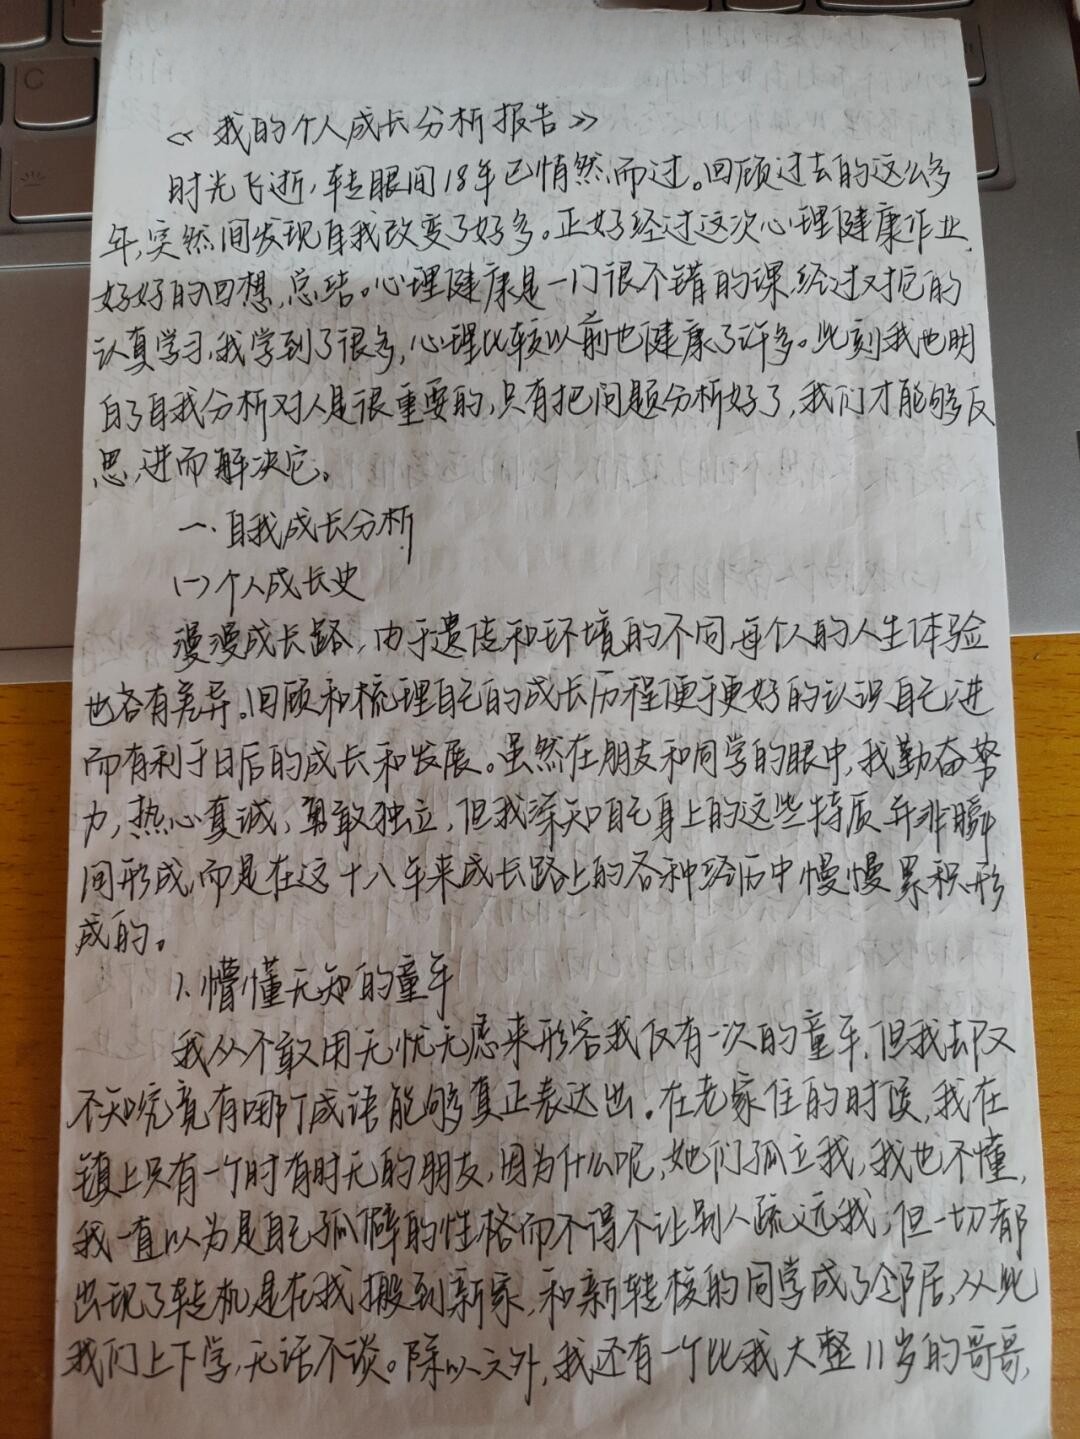 《我的个人成长分析报告》
时光飞逝，转眼间18年已悄然而过。回顾过去的这么多
年，突然间发现自我改变了好多。正好经过这次心理健康作业，
好好的回想，总结。心理健康是一门很不错的课，经过的
认真学习，我学到了很多，心理比较以前也健康了许多。此刻我也明
白了自我分析对人是很重要的，只有把问题分析好了，我们才能够反
思，进而解决它。
一、自我成长分析
(一)个人成长史
漫漫成长路，由于遗传和环境的不同，每个人的人生体验
也各有差异。回顾和梳理自己的成长历程便于更好的认识自己，进
而有利于日后的成长和发展。虽然在朋友和同学的眼中，我勤奋努
力，热心真诚，勇敢独立，但我深知自己身上的这些特质并非瞬
间形成，而是在这十八年来成长路上的各种经历中慢慢累积形
成的。
1.懵懂无知的童年
我从不敢用无忧无虑来形容我仅有一次的童年，但我却又
不知究竟有哪个成语能够真正表达出。在老家住的时候，我在
镇上只有一个时有时无的朋友，因为什么呢，她们孤立我，我也不懂，
我一直以为是自己孤僻的性格而不得不让别人疏远我，但一切都
出现了转机，是在我搬到新家，和新转校的同学成了邻居，从此
我们上下学，无话不谈。除以之外，我还有一个比我大整11岁的哥哥，